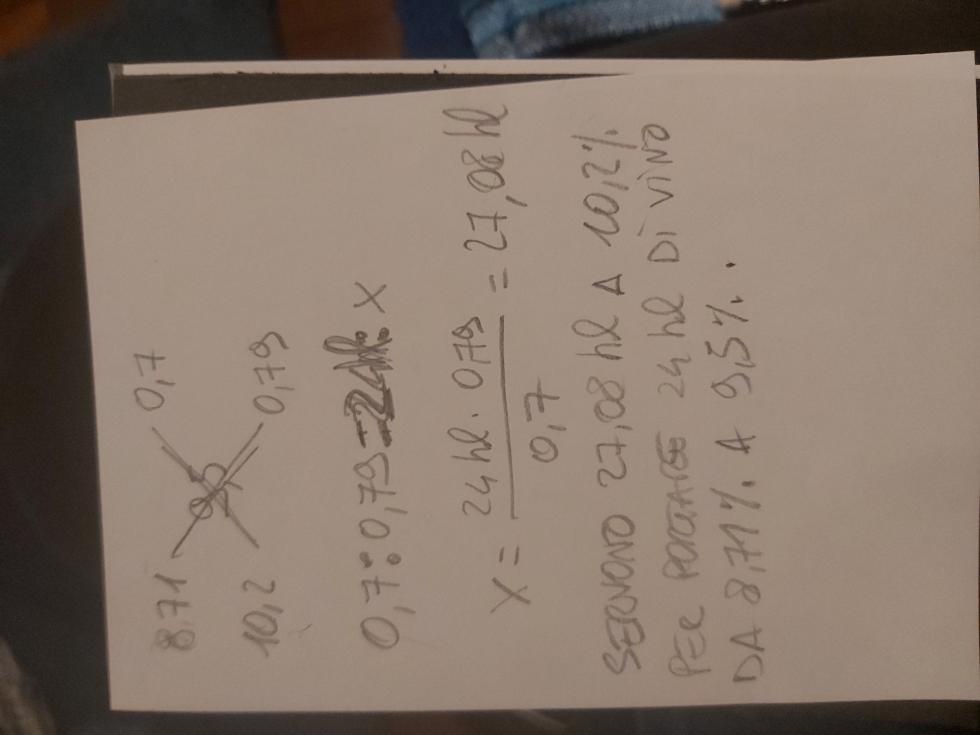 8,71 0,7
9,5
10,2 0,79
0,7:0,79=24hl:X
X = 24 hl · 0,79 / 0,7 = 27,08 hl
SERVONO 27,08 hl A 10,2%
PER PORTARE 24 hl DI VINO
DA 8,71% A 9,5%.